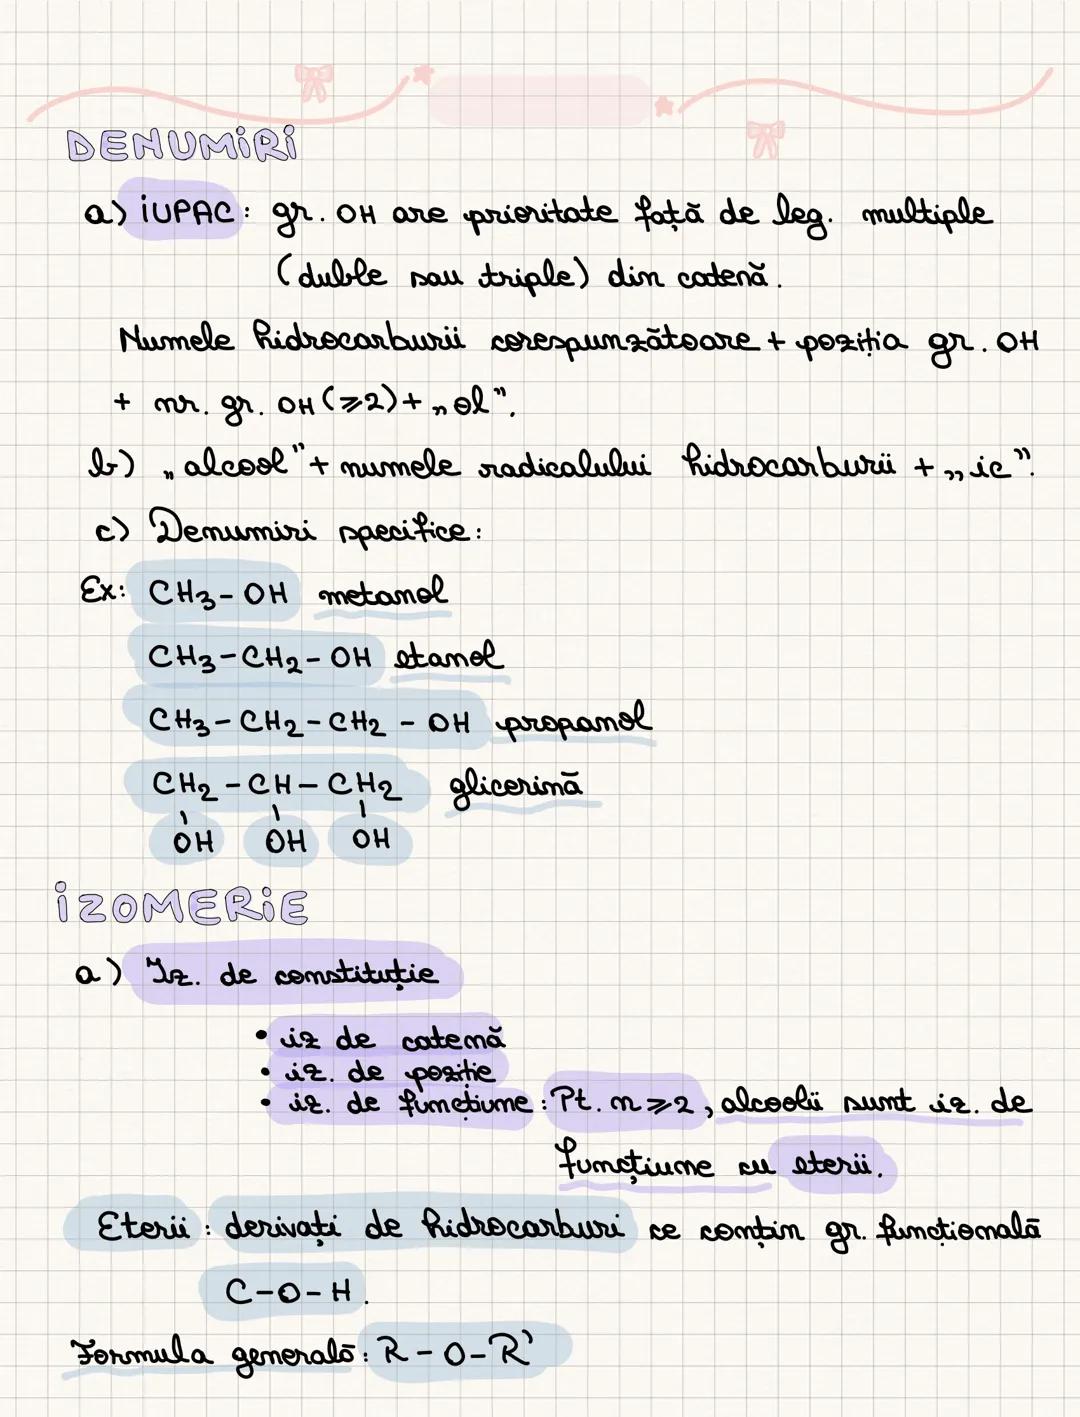 DENUMiRi
a) iUPAC: gr. OH are prioritate față de leg. multiple
(duble sau triple) din catenă.
Numele hidrocarburii corespunzătoare + poziția gr. OH
+ nr. gr. OH (⩾2) + „ol".
b) „alcool" + numele radicalului hidrocarburii + „ic".
c) Denumiri specifice:
Ex: CH3-OH metanol
CH3-CH2-OH etanol
CH3-CH2-CH2-OH propanol
CH2-CH-CH2 glicerină
OH OH OH
iZOMERiE
a) Iz. de constituție
• iz de catenă
• iz. de poziție
• iz. de funcțiune: Pt. n⩾2, alcoolii sunt iz. de
funcțiune cu eterii.
Eterii: derivați de hidrocarburi ce conțin gr. funcțională
C-O-H.
Formula generală: R-O-R'